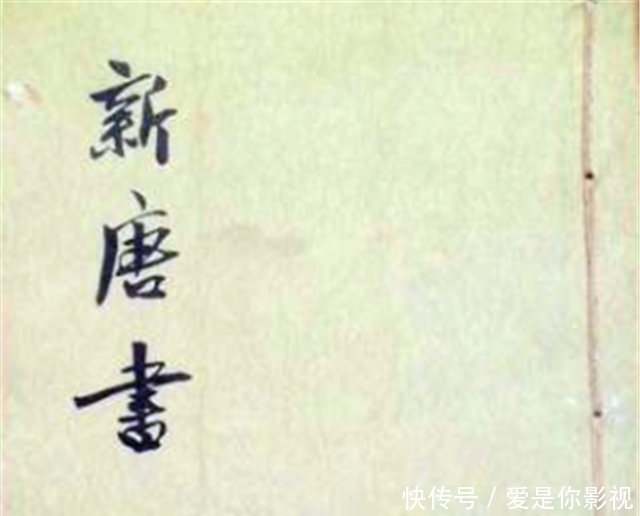 新唐書
快传号/爱是你影视